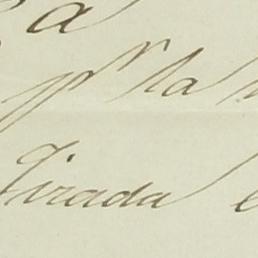 a
pr la
Tirada